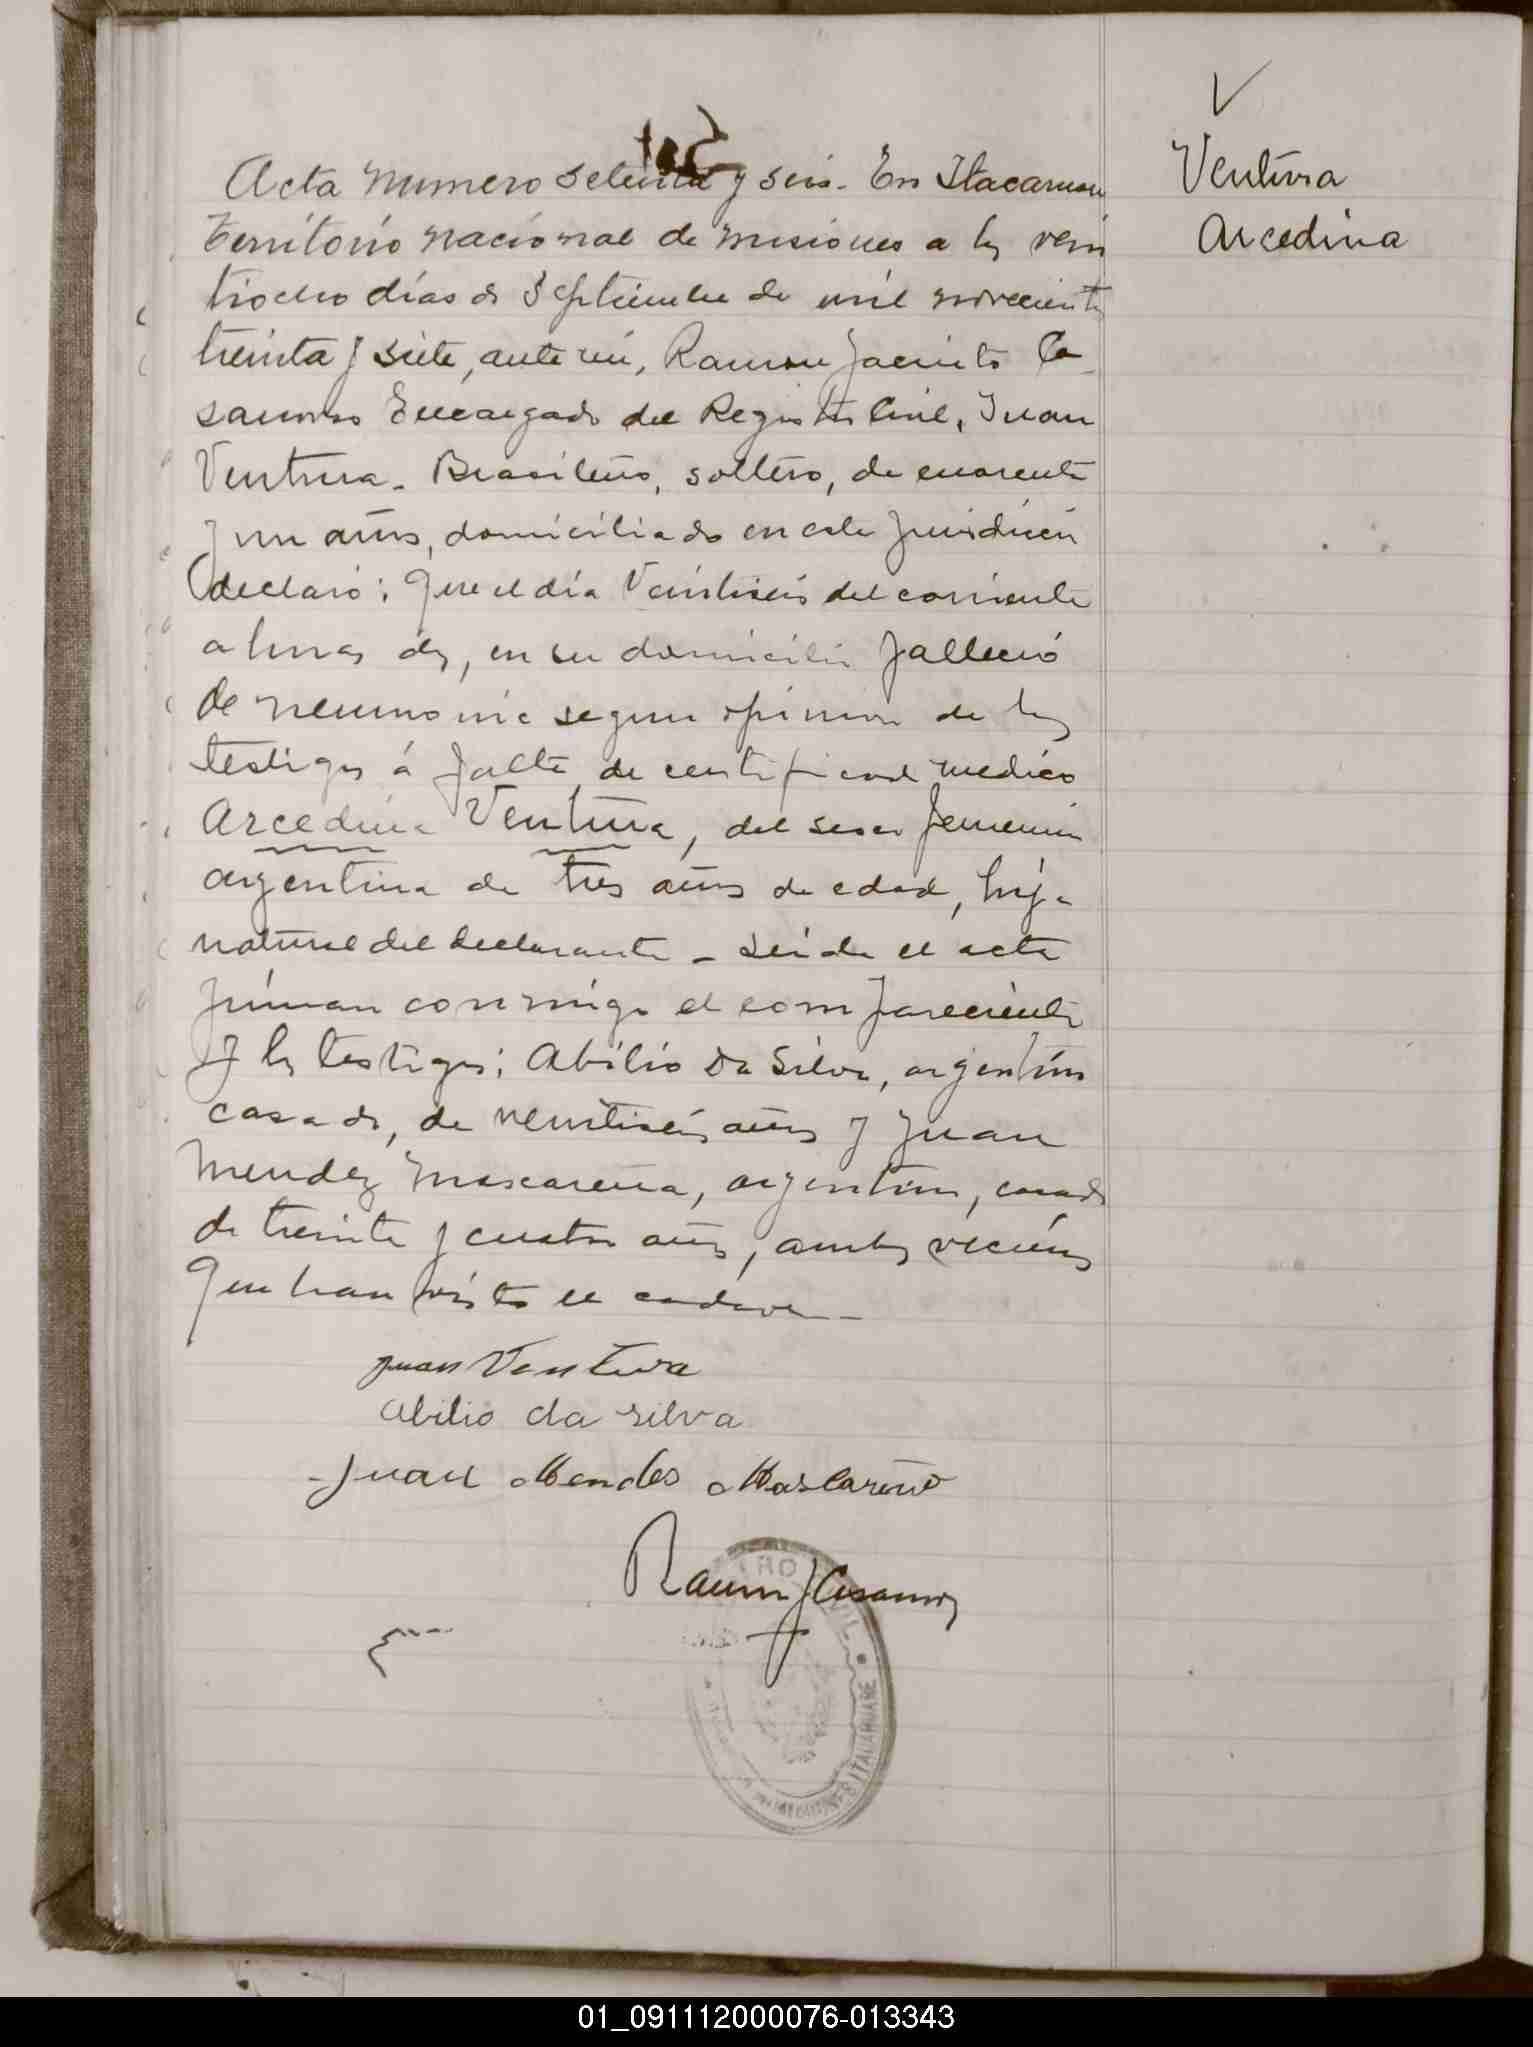 Acta numero setenta y seis. En Itacaruare
Territorio nacional de misiones a los vein
tiocho días de Septiembre de mil novecientos
treinta y siete, ante mi, Ramon Jacinto Ca
samoso Encargado del Registro Civil, Juan
Ventura. Brasileño, soltero, de cuarenta
y un años, domiciliado en esta jurisdicción
declaró: Que el día Veintiseis del corriente
a las diez, en su domicilio falleció
de neumonia segun opinion de los
testigos á falta de certificado medico
Arcedina Ventura, del sexo femenino
argentina de tres años de edad, hija
natural del declarante - Leida el acta
firman conmigo el compareciente
y los testigos: Abilio Da Silva, argentino
casado, de veintiseis años y Juan
Mendez Mascareña, argentino, casado
de treinta y cuatro años, ambos vecinos
que han visto el cadaver
Ventura
Arcedina
Juan Ventura
Abilio da silva
Juan Mendes Mascareño
Ramon J Casamo
ITACARUARE
01_091112000076-013343